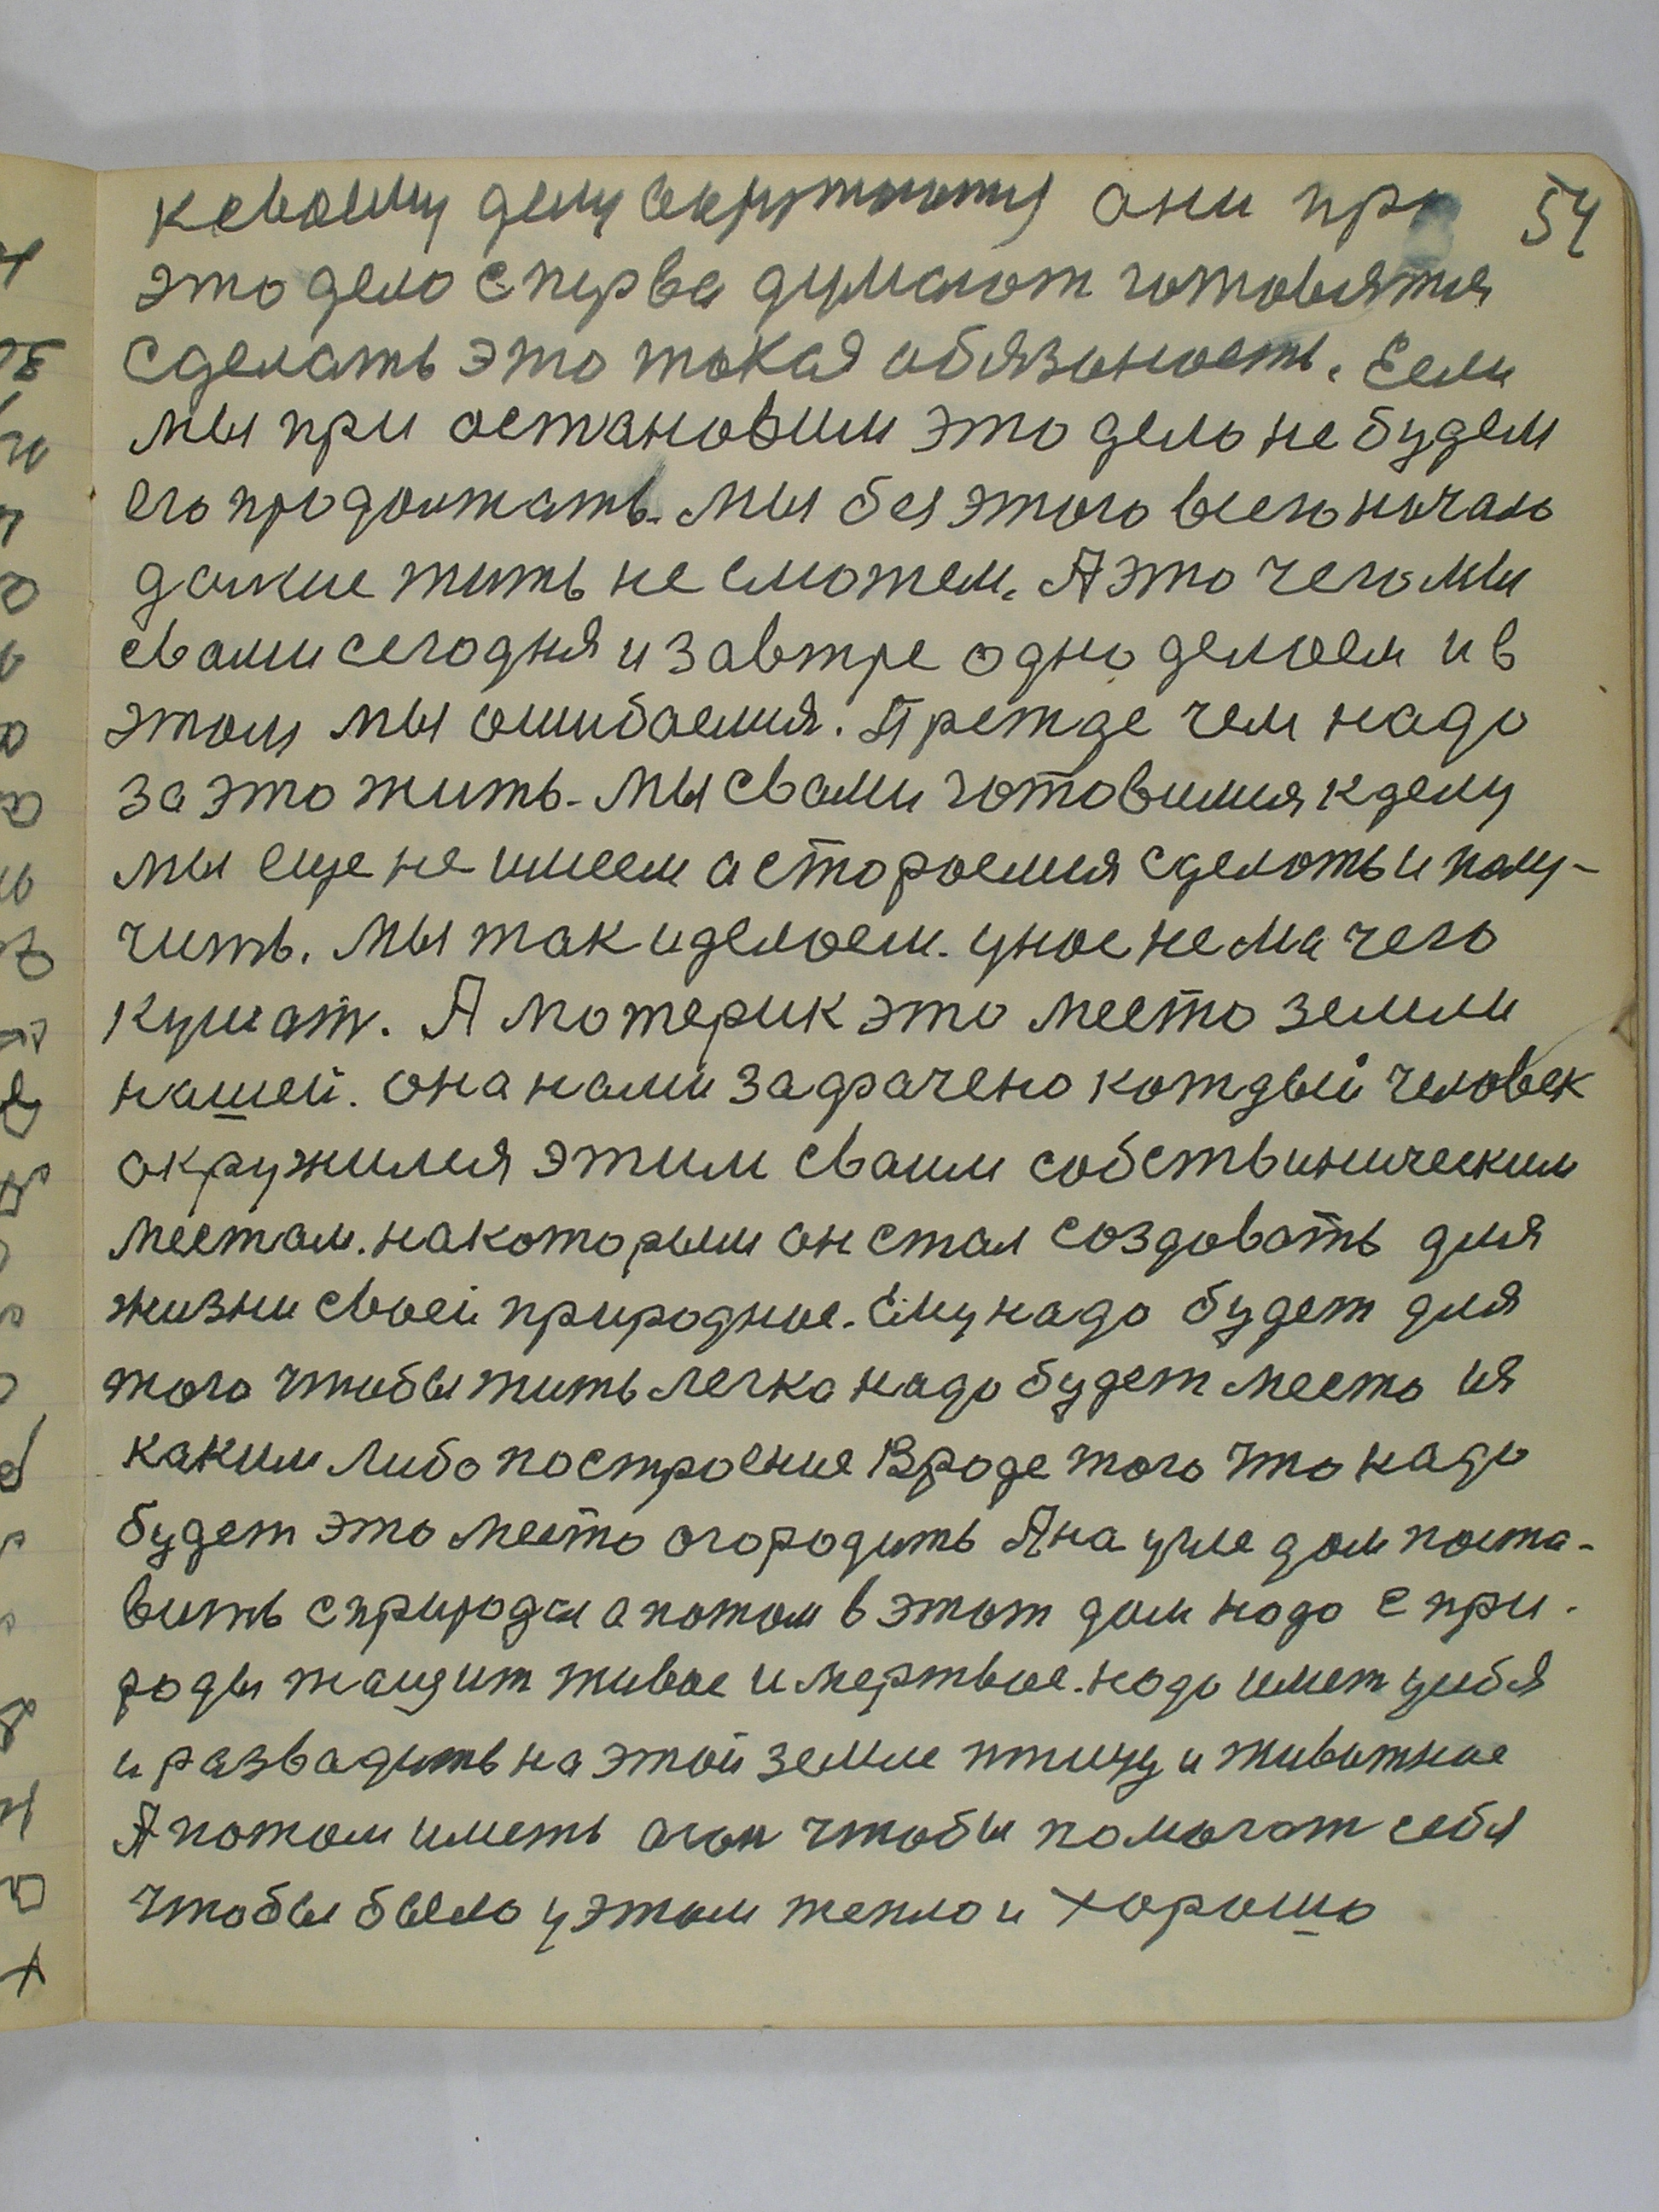 ксвоему делу они про 54
это дело сперва думают готовятся
сделать это такая обязаность. Если
мы при остановим это дело не будем
его продолжать. Мы без этого всего начало
далше жить не сможем. А это чего мы
свами сегодня и завтре одно делоем и в
этом мы ошибаемся. Прежде чем надо
за это жить. Мы свами готовимся к делу
мы еще не имеем а стороемся сделоть и полу-
чить. Мы так и делоем. унос нема чего
кушат. А мотерик это место земли
нашей. она нами захрачено которждый человек
окружился этим сваим собствиническим
местам. накоторым он стал создовать для
жизни своей природное. Ему надо будет для
того чтобы жить легко надо будет место ия
каким либо построение Вроде того что надо
будет это место огородить А на уме дом поста-
вить с природы а потом в этот дом нодо с при-
роды тащит живое и мертвое. нодо имет усибя
и развадить на этой земле птицу и животное
А потом иметь огон чтобы помогат себя
Чтобы было у этом тепло и хорошо